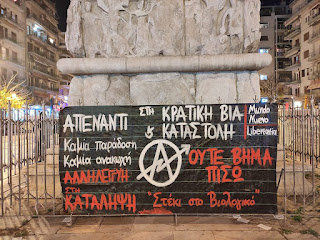 ΑΠΕΝΑΝΤΙ ΣΤΗ ΚΡΑΤΙΚΗ ΒΙΑ
& ΚΑΤΑΣΤΟΛΗ
Mundo
Nuevo
Libertatia
Καμια παράδοση
Καμια ανακωχή
ΟΥΤΕ ΒΗΜΑ
ΠΙΣΩ
ΑΛΛΗΛΕΓΓΥΗ
ΣΤΗ
ΚΑΤΑΛΗΨΗ "Στέκι στο Βιολογικό"